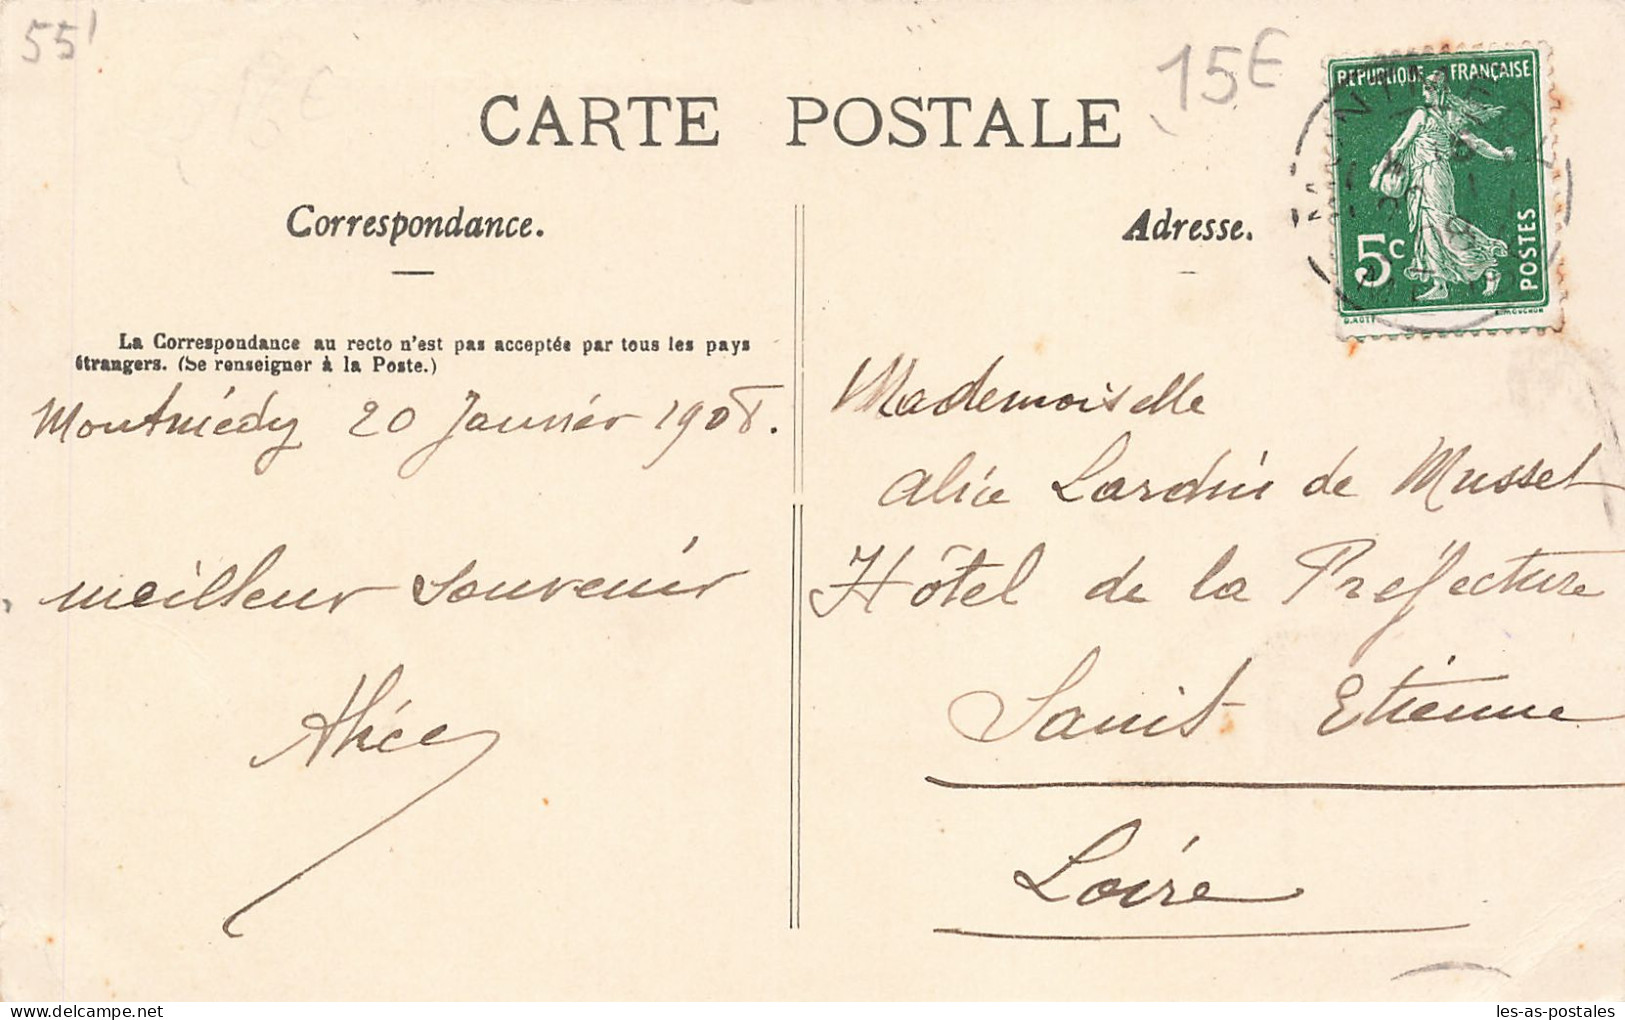 55
15€
CARTE POSTALE
REPUBLIQUE FRANÇAISE
5c
POSTES
Correspondance.
Adresse.
La Correspondance au recto n'est pas acceptée par tous les pays
étrangers. (Se renseigner à la Poste.)
Montmédy 20 Janvier 1908.
meilleur souvenir
Alice
Mademoiselle
Alice Lardin de Musset
Hôtel de la Préfecture
Saint Etienne
Loire
les-as-postales